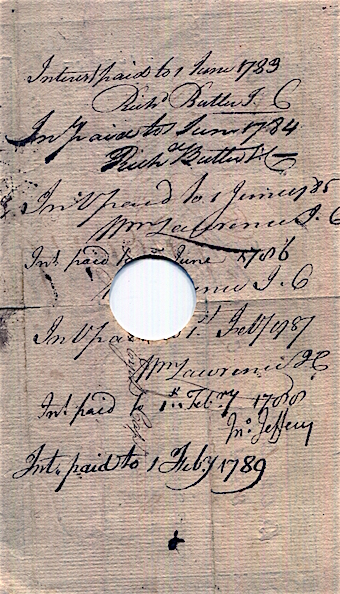 Interest paid to 1 June 1783
Richd Butler J. C
Int paid to 1 June 1784
Richd Butler J C
Int paid to 1 June 1785
Wm Lawrence J. C
Int. paid to June 1786
ence J. C
Int pa 1st Feby 1787
Wm Lawrence J C
Int. paid to 1st Febry 1788
Jno. Jeffery
Int. paid to 1 Feby 1789